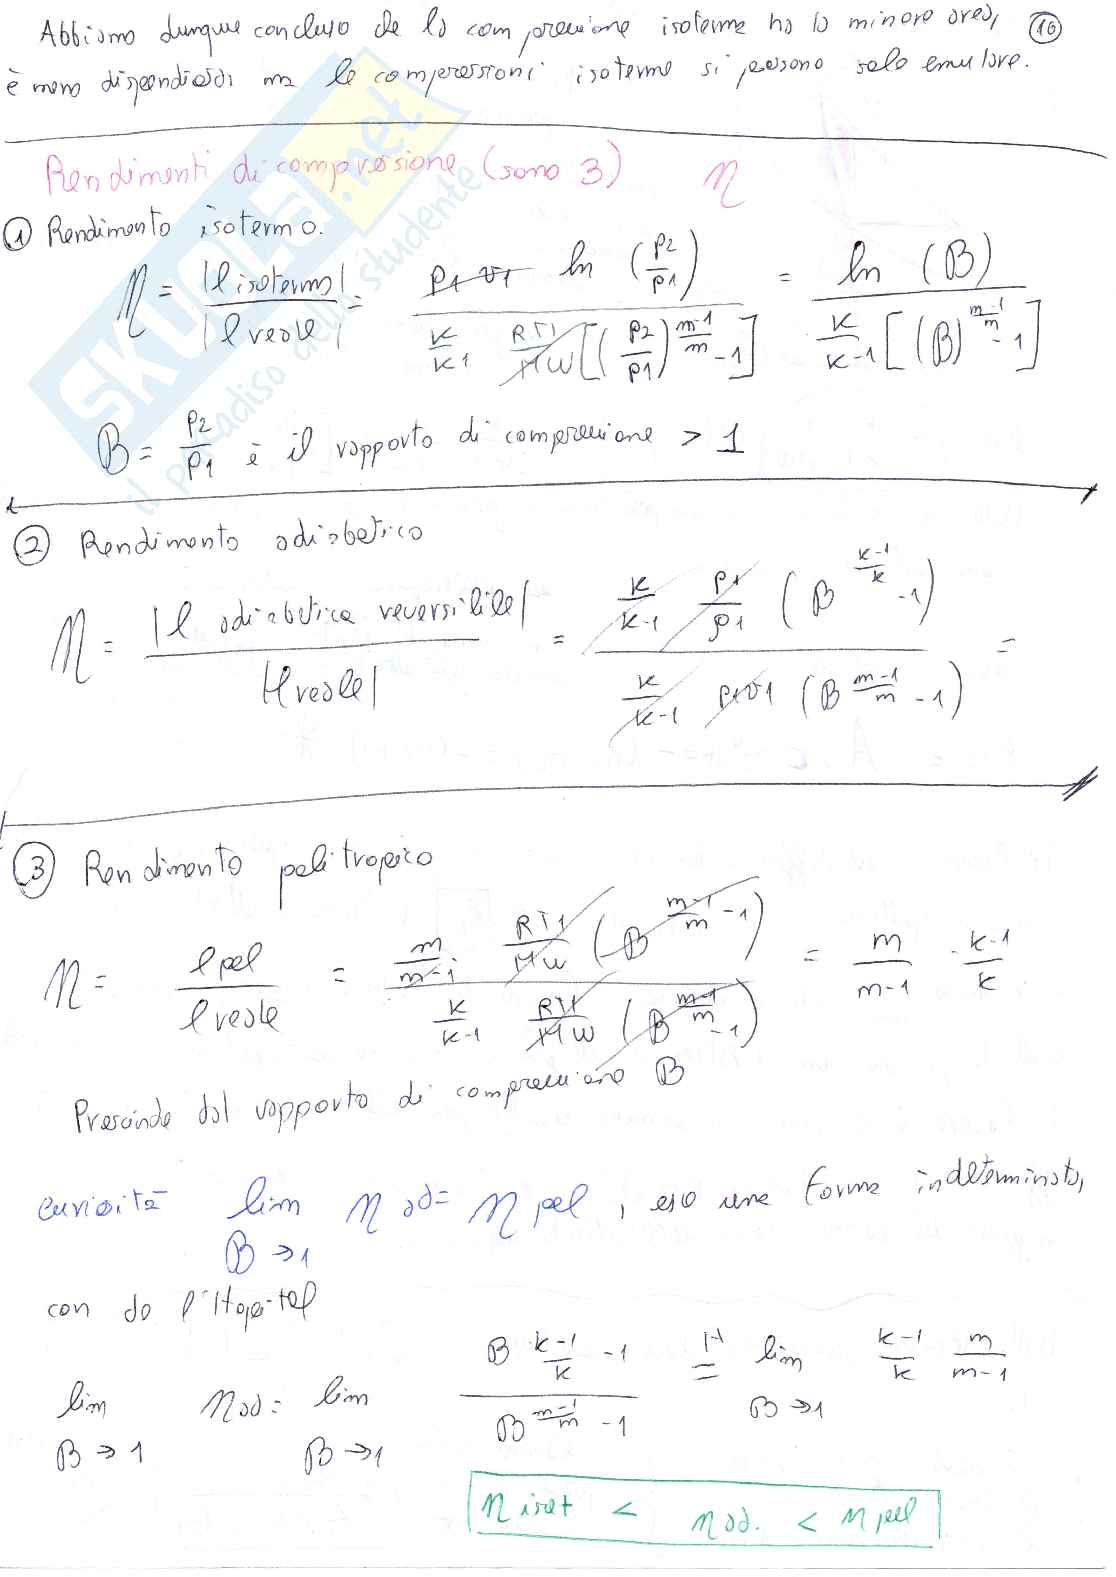 Abbiamo dunque concluso che la compressione isoterma ha la minore area, (16)
è meno dispendiosa ma le compressioni isoterme si possono solo emulare.
Rendimenti di compressione (sono 3) η
① Rendimento isotermo.
η = |l isoterma| / |l reale| = p1 v1 ln (p2/p1) / k/k-1 RT1/MW [(p2/p1)^(m-1/m) - 1] = ln (B) / k/k-1 [(B)^(m-1/m) - 1]
B = p2/p1 è il rapporto di compressione > 1
② Rendimento adiabatico
η = |l adiabatica reversibile| / |l reale| = k/k-1 p1/ρ1 (B^(k-1/k) - 1) / k/k-1 p1v1 (B^(m-1/m) - 1) =
③ Rendimento politropico
η = l pol / l reale = m/m-1 · RT1/MW (B^(m-1/m) - 1) / k/k-1 RT1/MW (B^(m-1/m) - 1) = m/m-1 · k-1/k
Prescinde dal rapporto di compressione B
curiosità lim B→1 η ad = η pol, esce una forma indeterminata,
con de l'Hopital
lim B→1 η ad = lim B→1 B^(k-1/k) - 1 / B^(m-1/m) - 1 =H lim B→1 k-1/k m/m-1
η isot < η ad. < η pol
SKUOLA.net
il paradiso dello studente